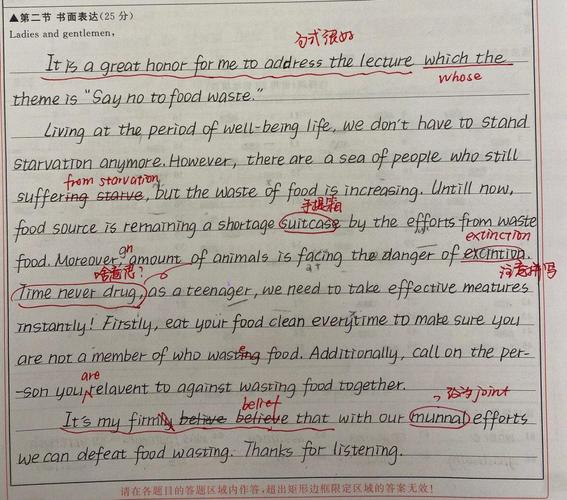 ▲第二节 书面表达(25分)
Ladies and gentlemen,
句式很好
It is a great honor for me to address the lecture which the
whose
theme is "Say no to food waste."
Living at the period of well-being life, we don't have to stand
starvation anymore. However, there are a sea of people who still
from starvation
suffering starve, but the waste of food is increasing. Untill now,
手提箱
food source is remaining a shortage suitcase by the efforts from waste
an extinction
food. Moreover, amount of animals is facing the danger of excintion.
啥意思? 注意拼写
Time never drug, as a teenager, we need to take effective meatures
instantly! Firstly, eat your food clean everytime to make sure you
are not a member of who wasting food. Additionally, call on the per-
are
-son you relavent to against wasting food together.
belief 改为joint
It's my firmly belive believe that with our munnal efforts
we can defeat food wasting. Thanks for listening.
请在各题目的答题区域内作答,超出矩形边框限定区域的答案无效!